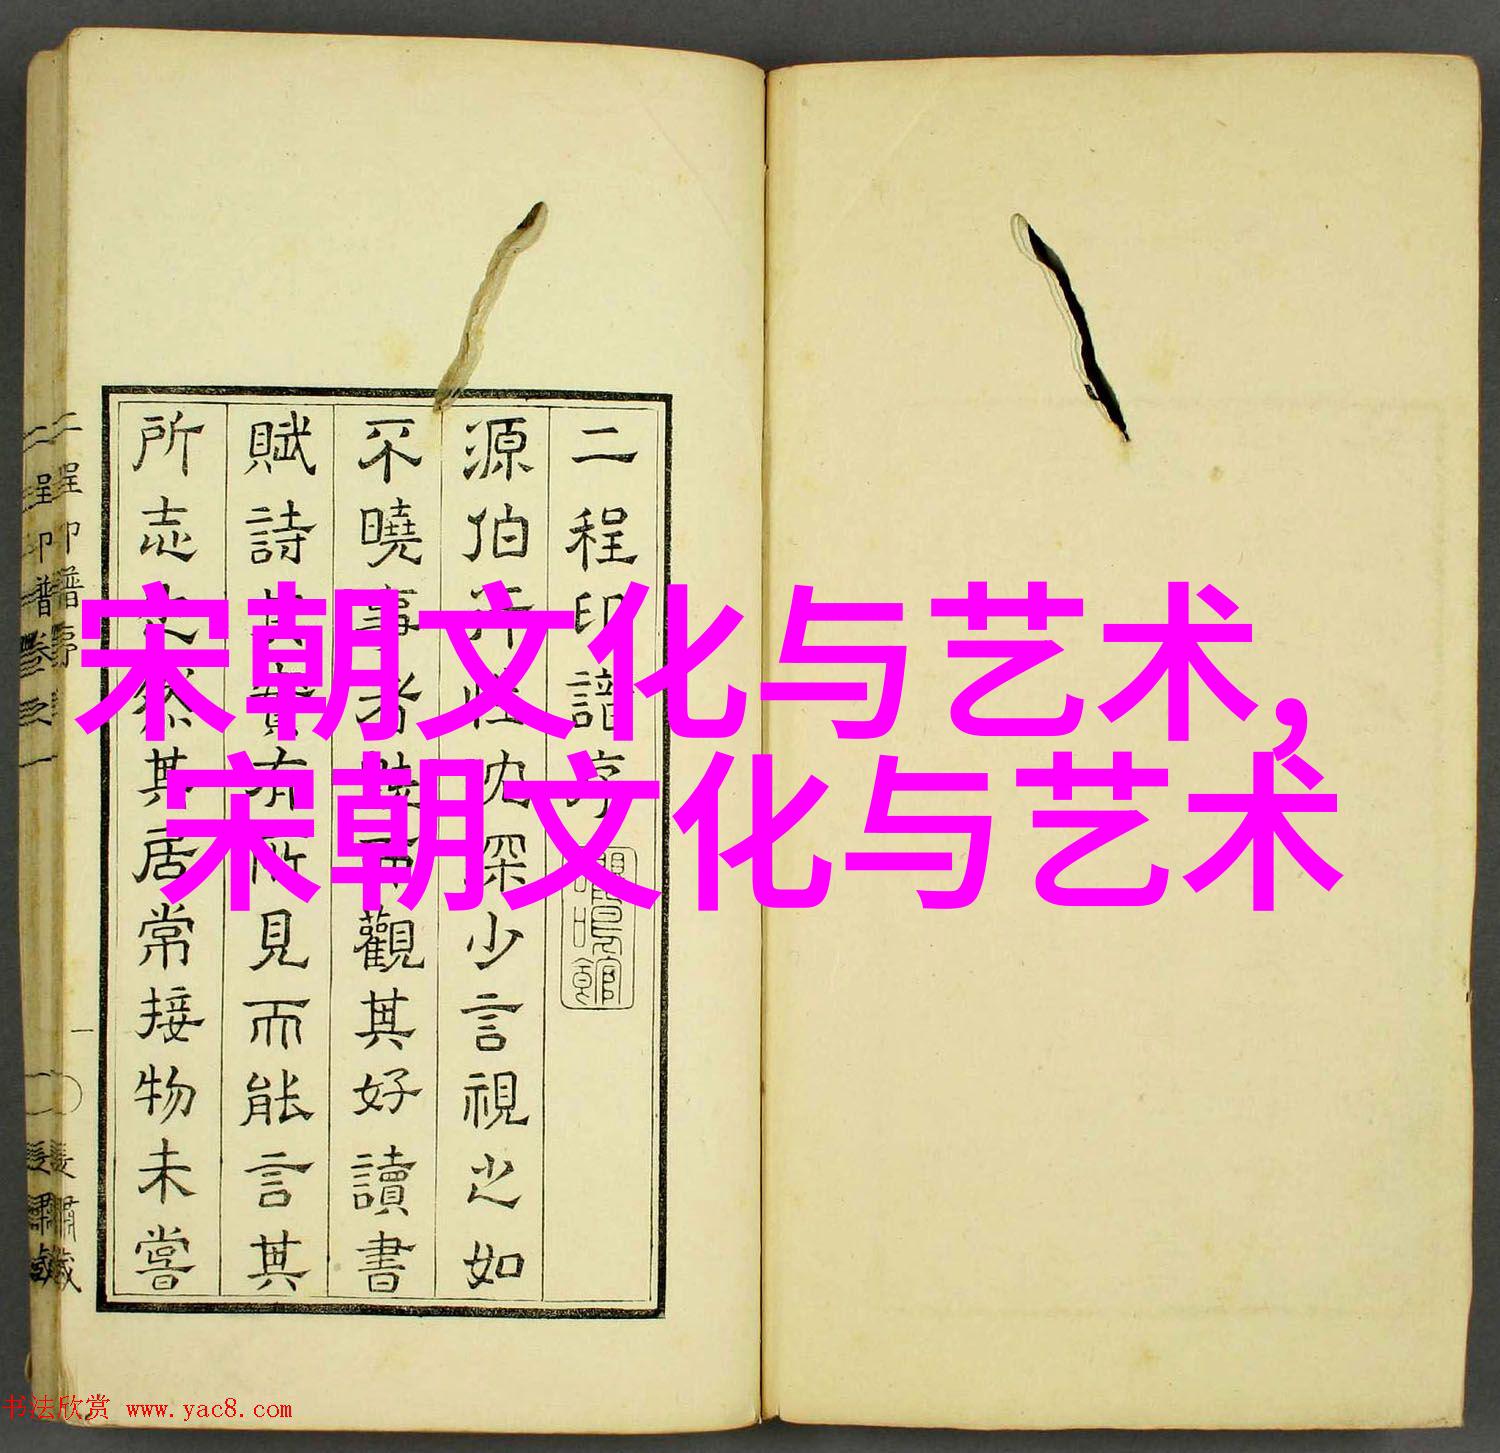 宋朝文化与艺术,
宋朝文化与艺术
二程印譜序
源伯行性沈深少言視之如
不曉事者而觀其好讀書
賦詩實有所見而能言其
所志也然其居常接物未嘗
二程印譜序
二程印譜卷之一
一
书法欣赏 www.yac8.com